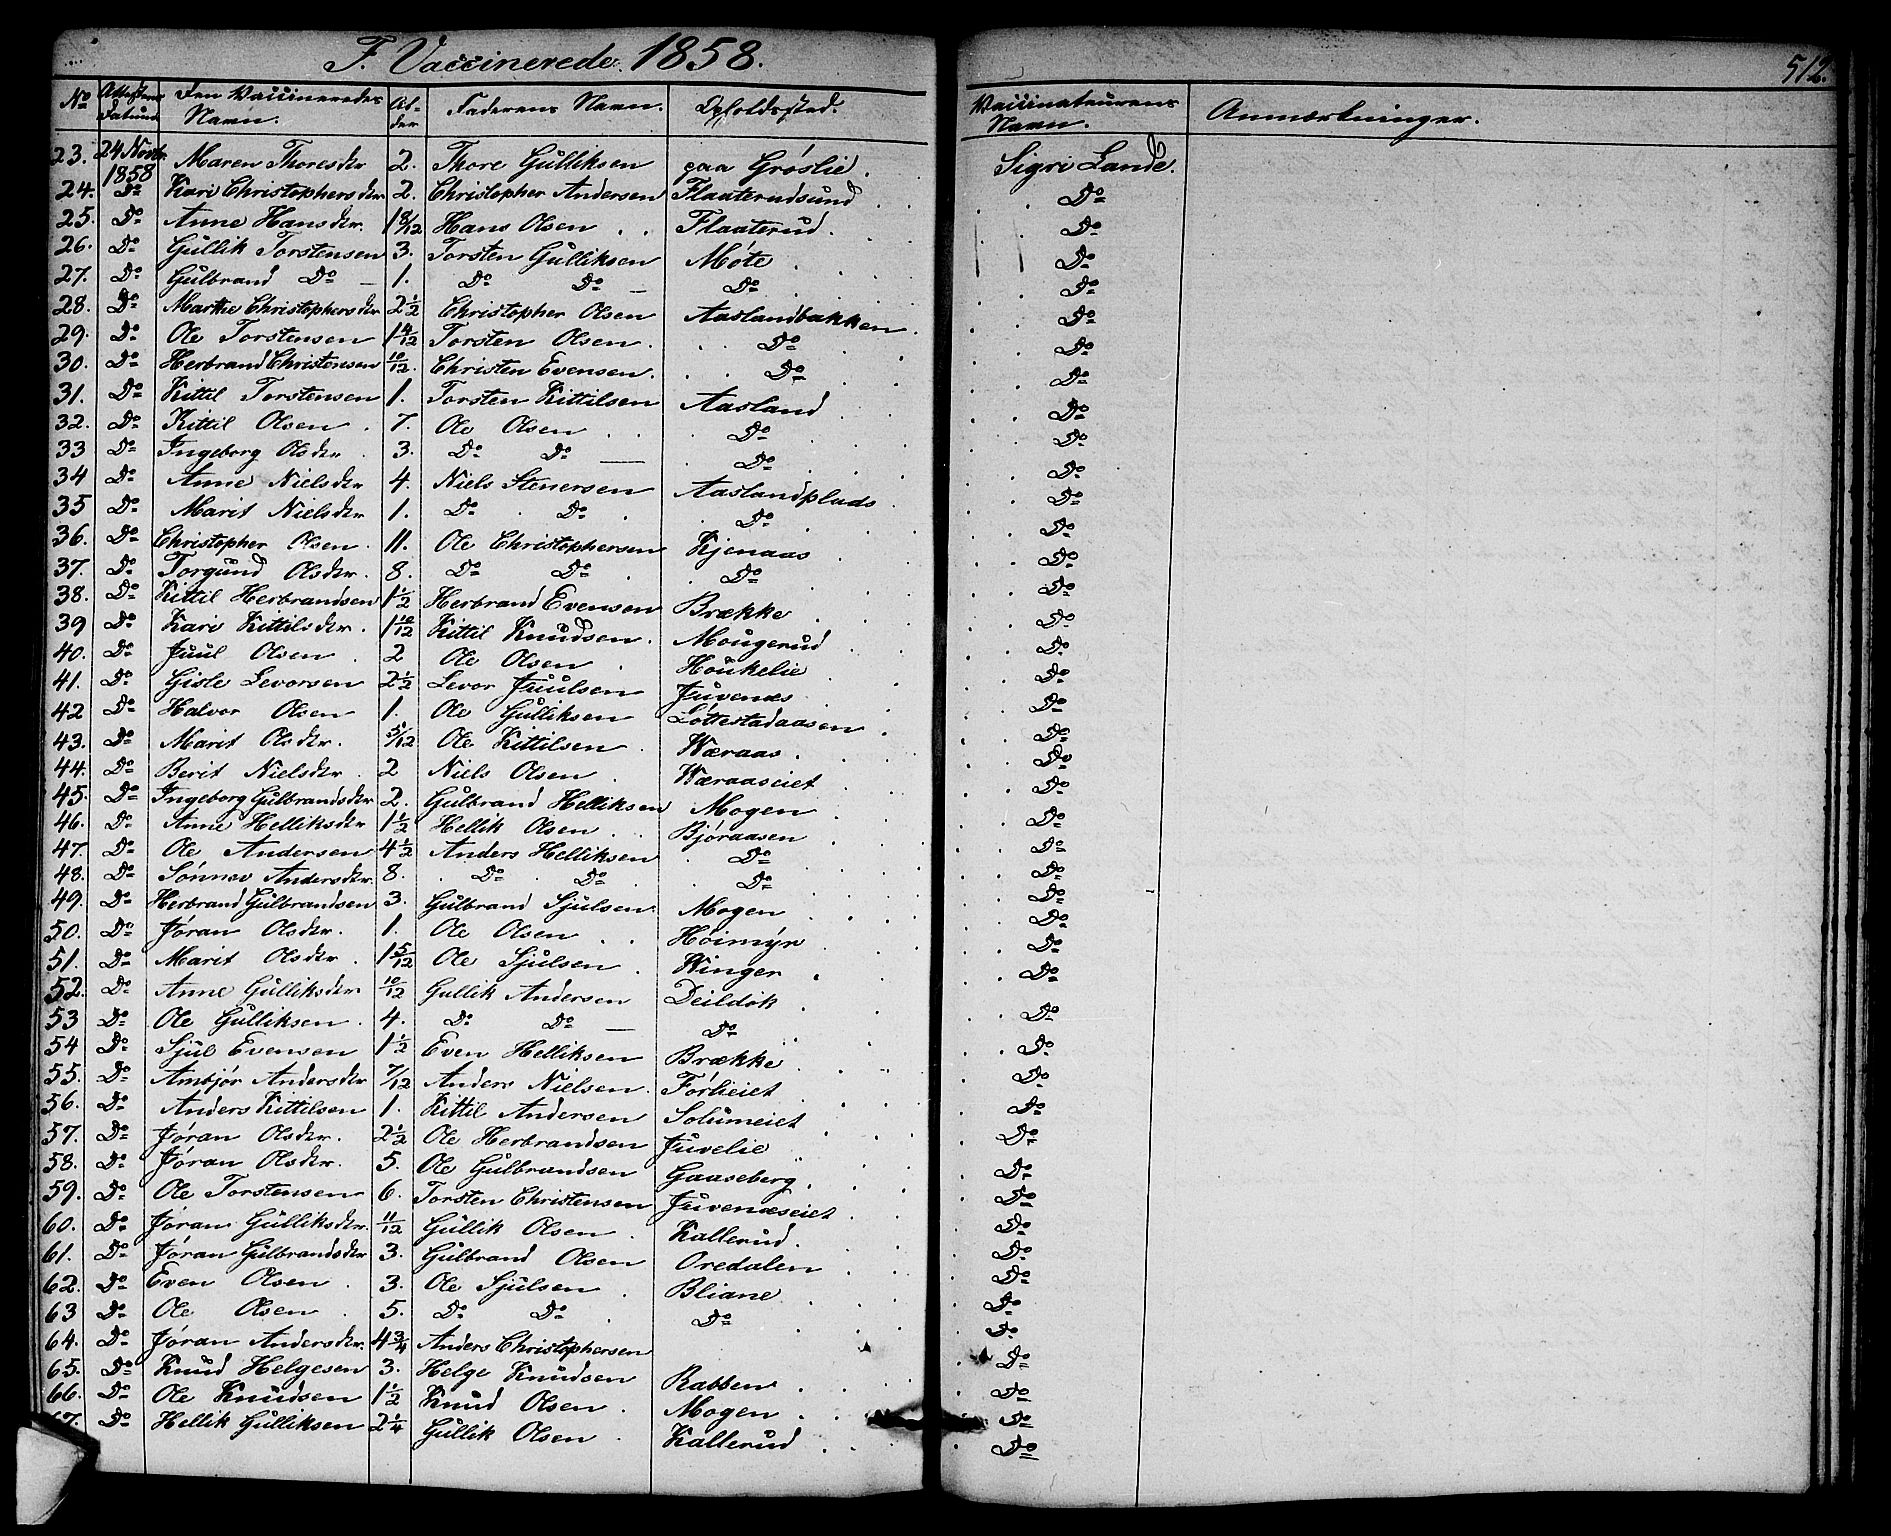 F. Vaccinerede 1858.
512.
No Attestens Datum Den Vaccineredes Navn. Alder Faderens Navn. Opholdssted. Vaccinateurens Navn. Anmærkninger.
23. 24 Novbr. 1858 Maren Thoresdtr 2. Thore Gulliksen paa Grøslie. Sigri Lande.
24. Do Kari Christophersdtr 2. Christopher Andersen Flaaterudsund Do
25. Do Anne Hansdtr. 1 8/12 Hans Olsen Flaaterud. Do
26. Do Gullik Torstensen 3. Torsten Gulliksen Møte Do
27. Do Gulbrand Do 1. Do Do Do Do
28. Do Marthe Christophersdtr 2 1/2 Christopher Olsen Aaslandbakken. Do
29. Do Ole Torstensen 1 4/12 Torsten Olsen. Do Do
30. Do Herbrand Christensen 10/12. Christen Evensen. Do Do
31. Do Kittil Torstensen 1. Torsten Kittilsen Aasland Do
32. Do Kittil Olsen 7. Ole Olsen Do Do
33 Do Ingeborg Olsdtr 3. Do Do Do Do
34 Do Anne Nielsdtr 4. Niels Stenersen Aaslandplads Do
35 Do Marit Nielsdtr 1. Do Do Do Do
36. Do Christopher Olsen 11. Ole Christophersen Kjenaas Do
37. Do Torgund Olsdtr. 8. Do Do Do Do
38. Do Kittil Herbrandsen 1 1/2 Herbrand Evensen Brække Do
39 Do Kari Kittilsdtr. 1 10/12 Kittil Knudsen. Mougerud Do
40. Do Juul Olsen 2 Ole Olsen Houkelie Do
41. Do Gisle Levorsen 2 1/2 Levor Juulsen Juvenæs Do
42 Do Halvor Olsen 1. Ole Gulliksen Løttestadaasen Do
43. Do Marit Olsdtr. 5/12 Ole Kittilsen Væraas. Do
44. Do Berit Nielsdtr 2 Niels Olsen Væraaseiet Do
45. Do Ingeborg Gulbrandsdtr 2. Gulbrand Helliksen Mogen Do
46. Do Anne Helliksdtr 1 1/2 Hellik Olsen Bjøraasen Do
47. Do Ole Andersen 4 1/2 Anders Helliksen Do Do
48. Do Sønnev Andersdtr. 8. Do Do Do Do
49. Do Herbrand Gulbrandsen 3. Gulbrand Sjulsen. Mogen Do
50. Do Jøran Olsdtr. 1. Ole Olsen Høimyr Do
51. Do Marit Olsdtr 1 5/12 Ole Sjulsen Winger Do
52. Do Anne Gulliksdtr. 10/12 Gullik Andersen Deildok Do
53 Do Ole Gulliksen 4. Do Do Do Do
54 Do Sjul Evensen 1 1/2 Even Helliksen Brække Do
55. Do Ambjør Andersdtr 7/12 Anders Nielsen.Førlieiet Do
56. Do Anders Kittilsen 1. Kittil Andersen Solumeiet Do
57. Do Jøran Olsdtr. 2 1/2 Ole Herbrandsen Juvelie Do
58. Do Jøran Olsdtr. 5. Ole Gulbrandsen Gaaseberg. Do
59. Do Ole Torstensen 6. Torsten Christensen Juvenæseiet Do
60. Do Jøran Gulliksdtr. 11/12 Gullik Olsen Kallerud. Do
61. Do Jøran Gulbrandsdtr 3. Gulbrand Olsen Oredalen Do
62. Do Even Olsen 3. Ole Sjulsen Bliane Do
63 Do Ole Olsen 5. Do Do Do Do
64. Do Jøran Andersdtr. 4 3/4 Anders Christophersen Do
65. Do Knud Helgesen 3. Helge Knudsen Rabben Do
66. Do Ole Knudsen 1 1/2 Knud Olsen. Mogen Do
67. Do Hellik Gulliksen 2 1/4 Gullik Olsen Kallerud Do